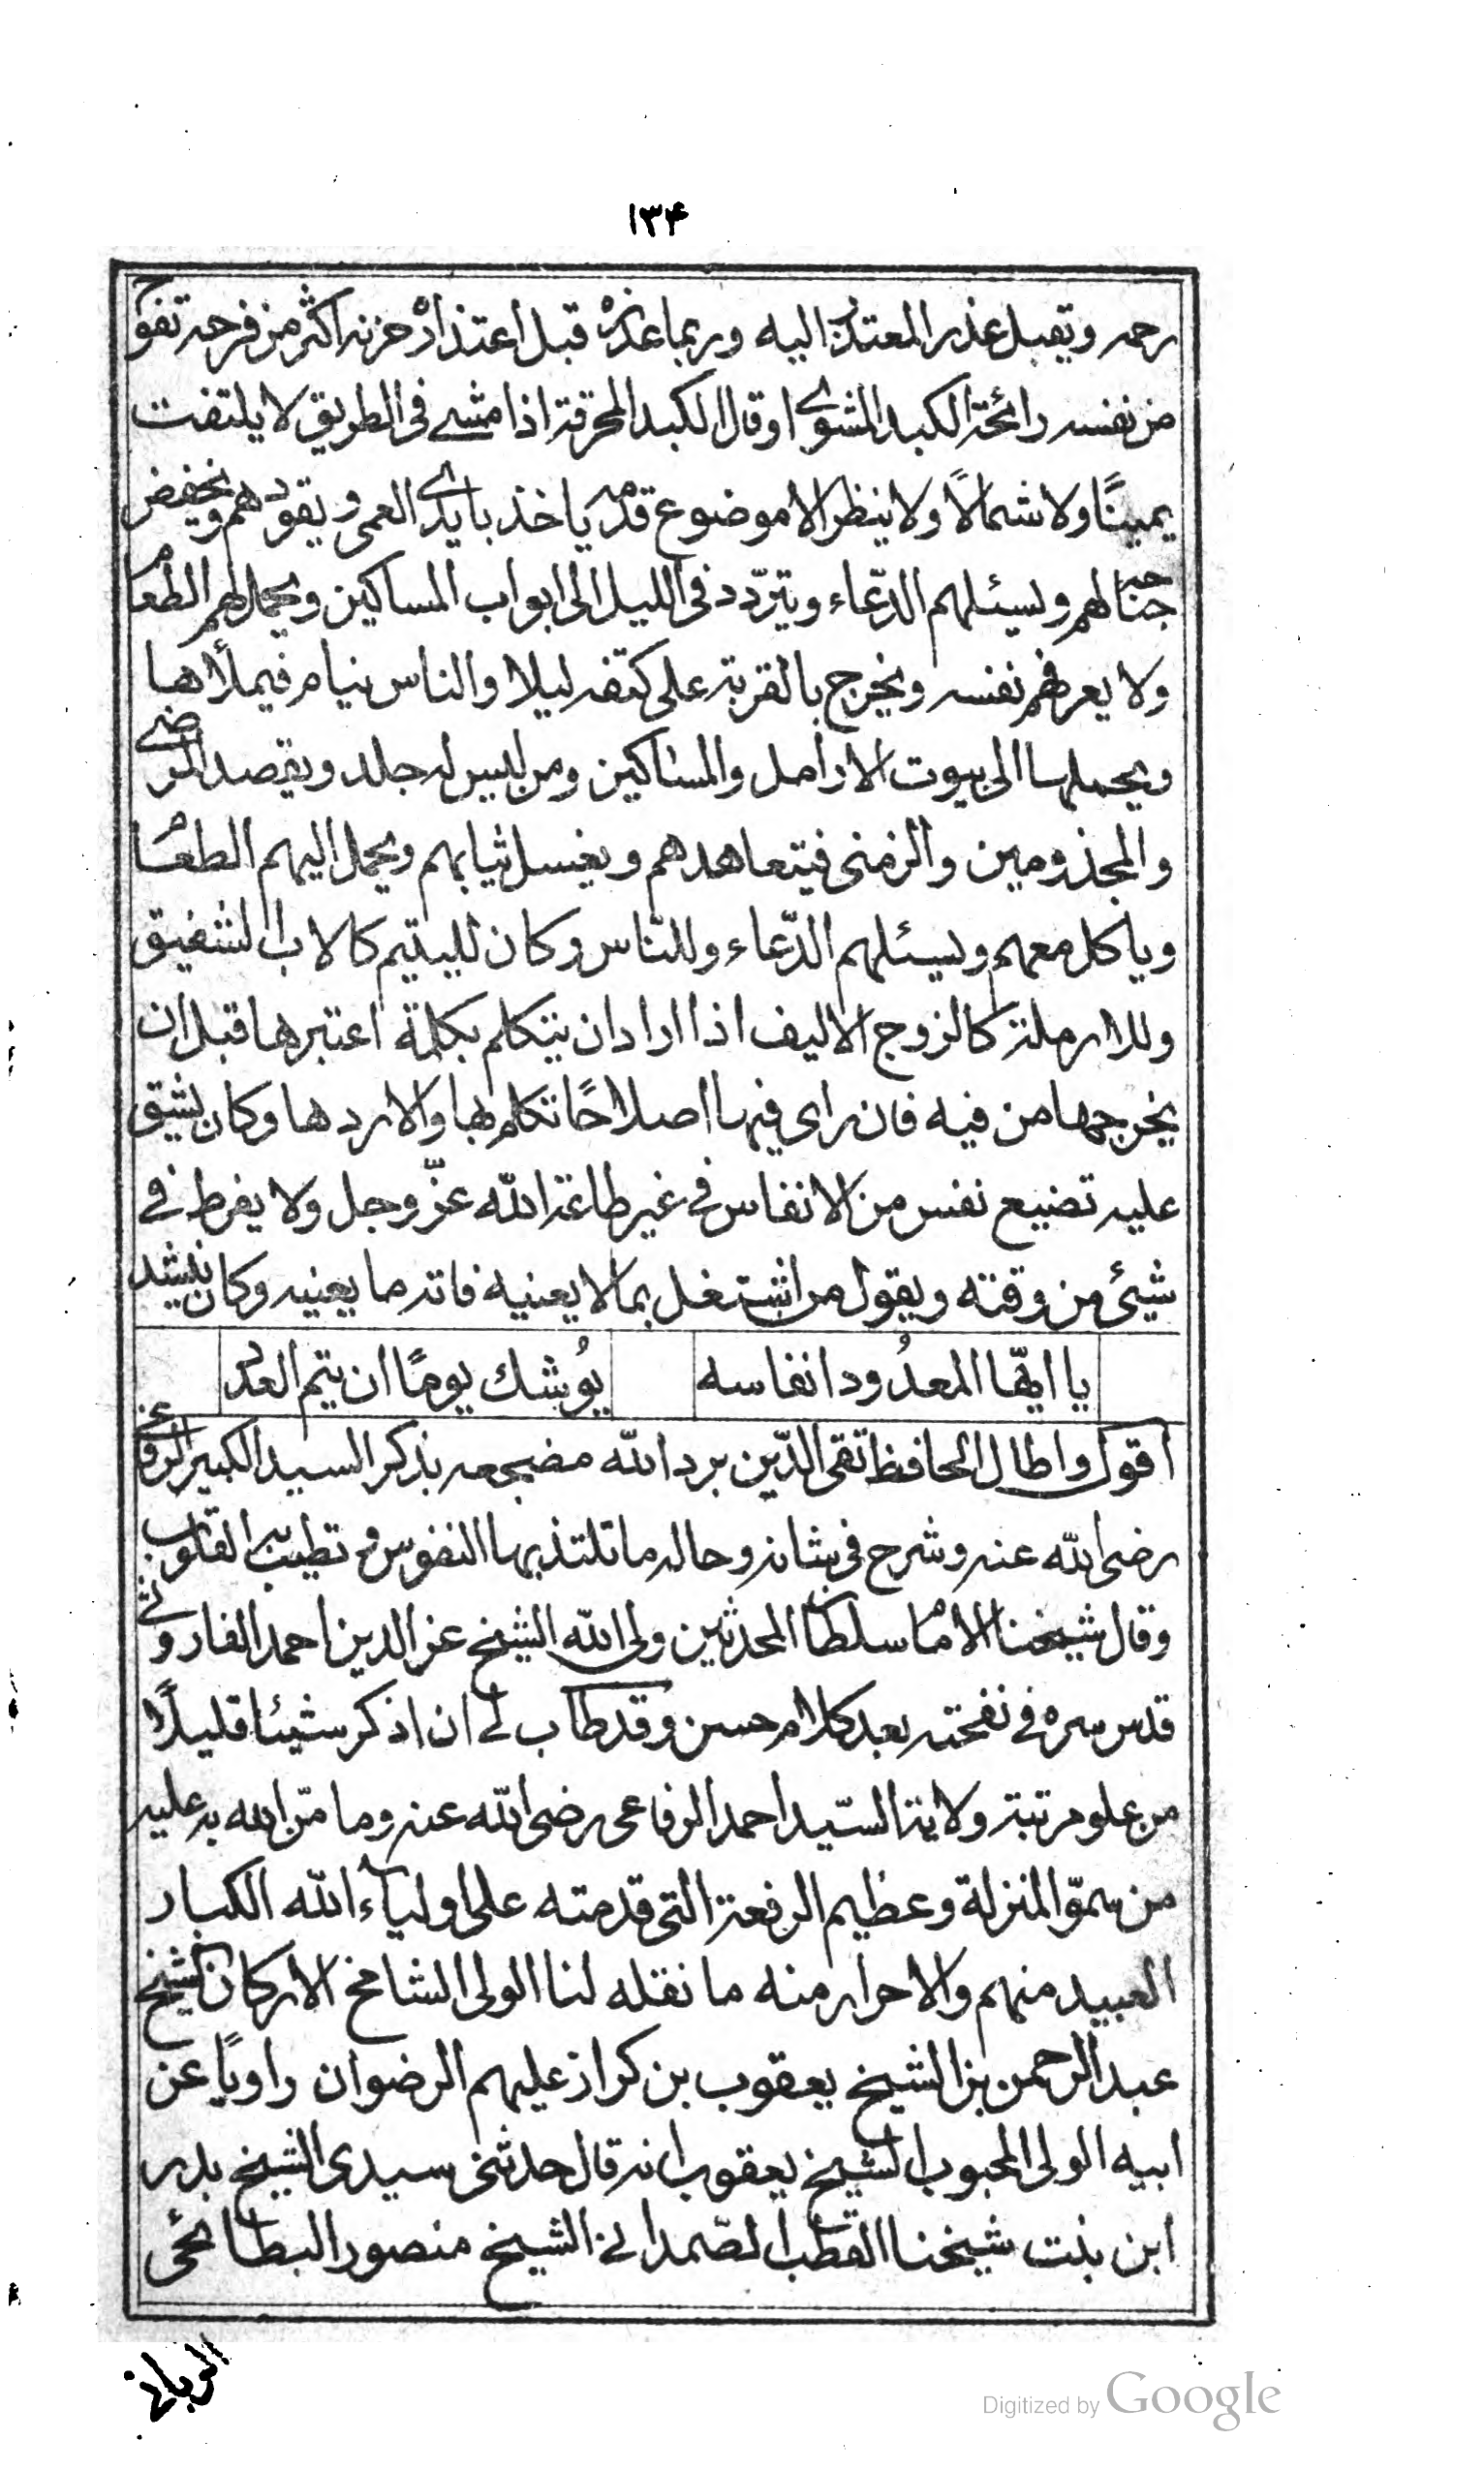 ١٣۴
رحمه ويقبل عذر المعتذر اليه وربما عذره قبل اعتذاره حزنه اكثر من فرحه تفوح
من نفسه رائحة الكبد المشوي او قال الكبد المحرقة اذا مشى فى الطريق لا يلتفت
يمينًا ولا شمالًا ولا ينظر الا موضوع قدمه ياخذ بايدى العمى ويقودهم ويخفض
جناحه لهم ويسئلهم الدّعاء ويتردّد فى الليل الى ابواب المساكين ويحمل لهم الطعام
ولا يعرفهم نفسه ويخرج بالقربة على كتفه ليلا والناس نيام فيملأها
ويحملها الى بيوت الارامل والمساكين ومن ليس له جلد ويقصد المرضى
والمجذومين والزمنى فيتعاهدهم ويغسل ثيابهم ويحمل اليهم الطعام
وياكل معهم ويسئلهم الدّعاء وللنّاس وكان لليتيم كالاب الشفيق
وللارملة كالزوج الاليف اذا اراد ان يتكلم بكلمة اعتبرها قبل ان
يخرجها من فيه فان راى فيها اصلاحًا تكلم بها والا ردها وكان يشق
عليه تضييع نفس من الانفاس فى غير طاعة الله عزّ وجل ولا يفرط فى
شيئ من وقته ويقول من اشتغل بما لا يعنيه فاته ما يعنيه وكان ينشد
يا ايّها المعدُود انفاسه يُوشك يومًا ان يتم العدد
اقول واطال الحافظ تقى الدّين برد الله مضجعه بذكر السيد الكبير الرفاعى
رضى الله عنه وشرح فى شانه وحاله ما تلتذ بها النفوس وتطيب به القلوب
وقال شيخنا الامام سلطان المحدثين ولى الله الشيخ عز الدين احمد الفاروثى
قدس سره فى نفحته بعد كلام حسن وقد طاب لى ان اذكر شيئا قليلًا
من علو مرتبة ولاية السّيد احمد الرفاعى رضى الله عنه وما منّ الله به عليه
من سموّ المنزلة وعظيم الرفعة التى قدمته على اولياء الله الكبار
العبيد منهم والاحرار منه ما نقله لنا الولى الشامخ الاركان الشيخ
عبد الرحمن بن الشيخ يعقوب بن كراز عليهم الرضوان راويًا عن
ابيه الولى المحبوب الشيخ يعقوب انه قال حدثنى سيدى الشيخ بدر
ابن بنت شيخنا القطب الصّمدانى الشيخ منصور البطائحى
الربانى
Digitized by Google